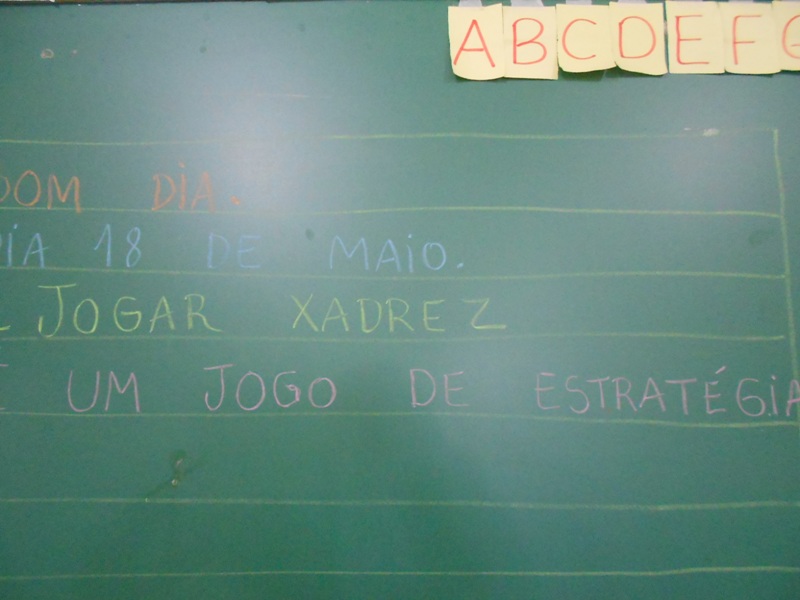 A B C D E F G
OM DIA.
DIA 18 DE MAIO.
JOGAR XADREZ
É UM JOGO DE ESTRATÉGIA